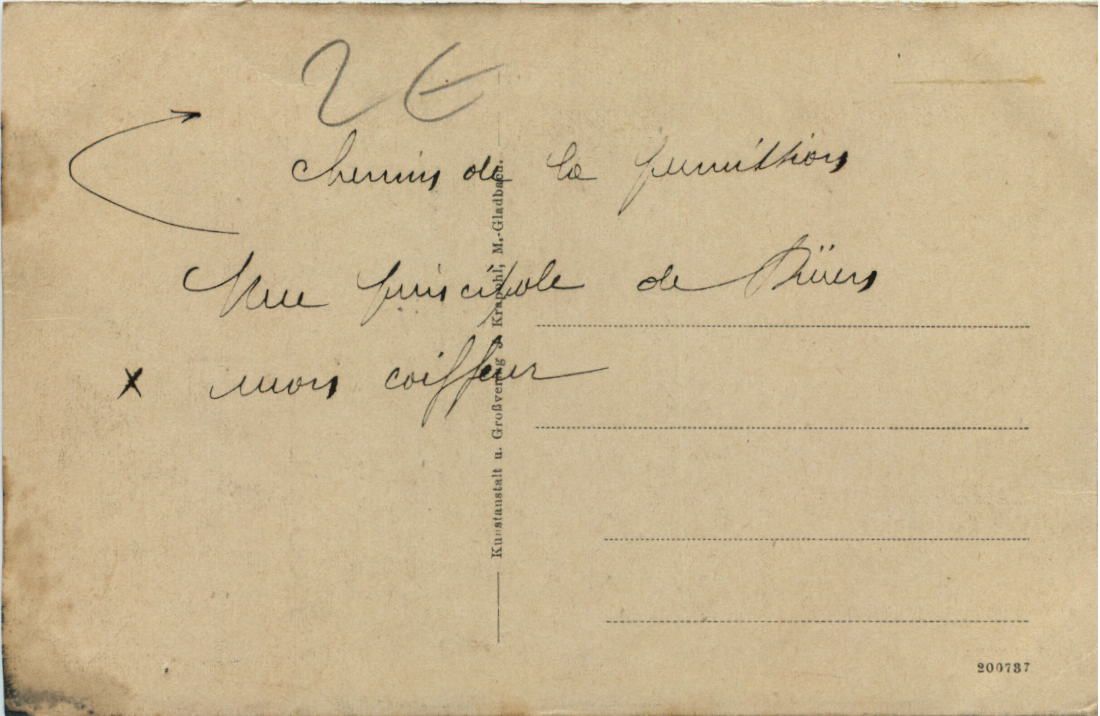 2 €
chemin de la permission
Rue principale de
x mon coiffeur
Kunstanstalt u. Großverlag J. Krapohl, M.-Gladbach.
200787